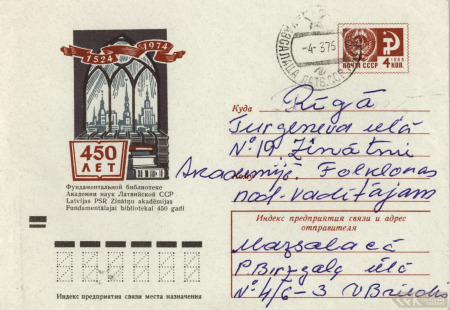 1524 1974
450
ЛЕТ
Фундаментальной библиотеке
Академии наук Латвийской ССР
Latvijas PSR Zinātņu akadēmijas
Fundamentālajai bibliotēkai 450 gadi
-4-375
ПОЧТА СССР 4 КОП.
1966
Куда
Rīgā
Turgeneva ielā
№ 19. Zinātņu
Akadēmijā. Folkloras
nod. vadītājam
Индекс предприятия связи и адрес
отправителя
Mazsalacā
P. Birzgaļa ielā
№ 4/6-3 V Briedis
Индекс предприятия связи места назначения